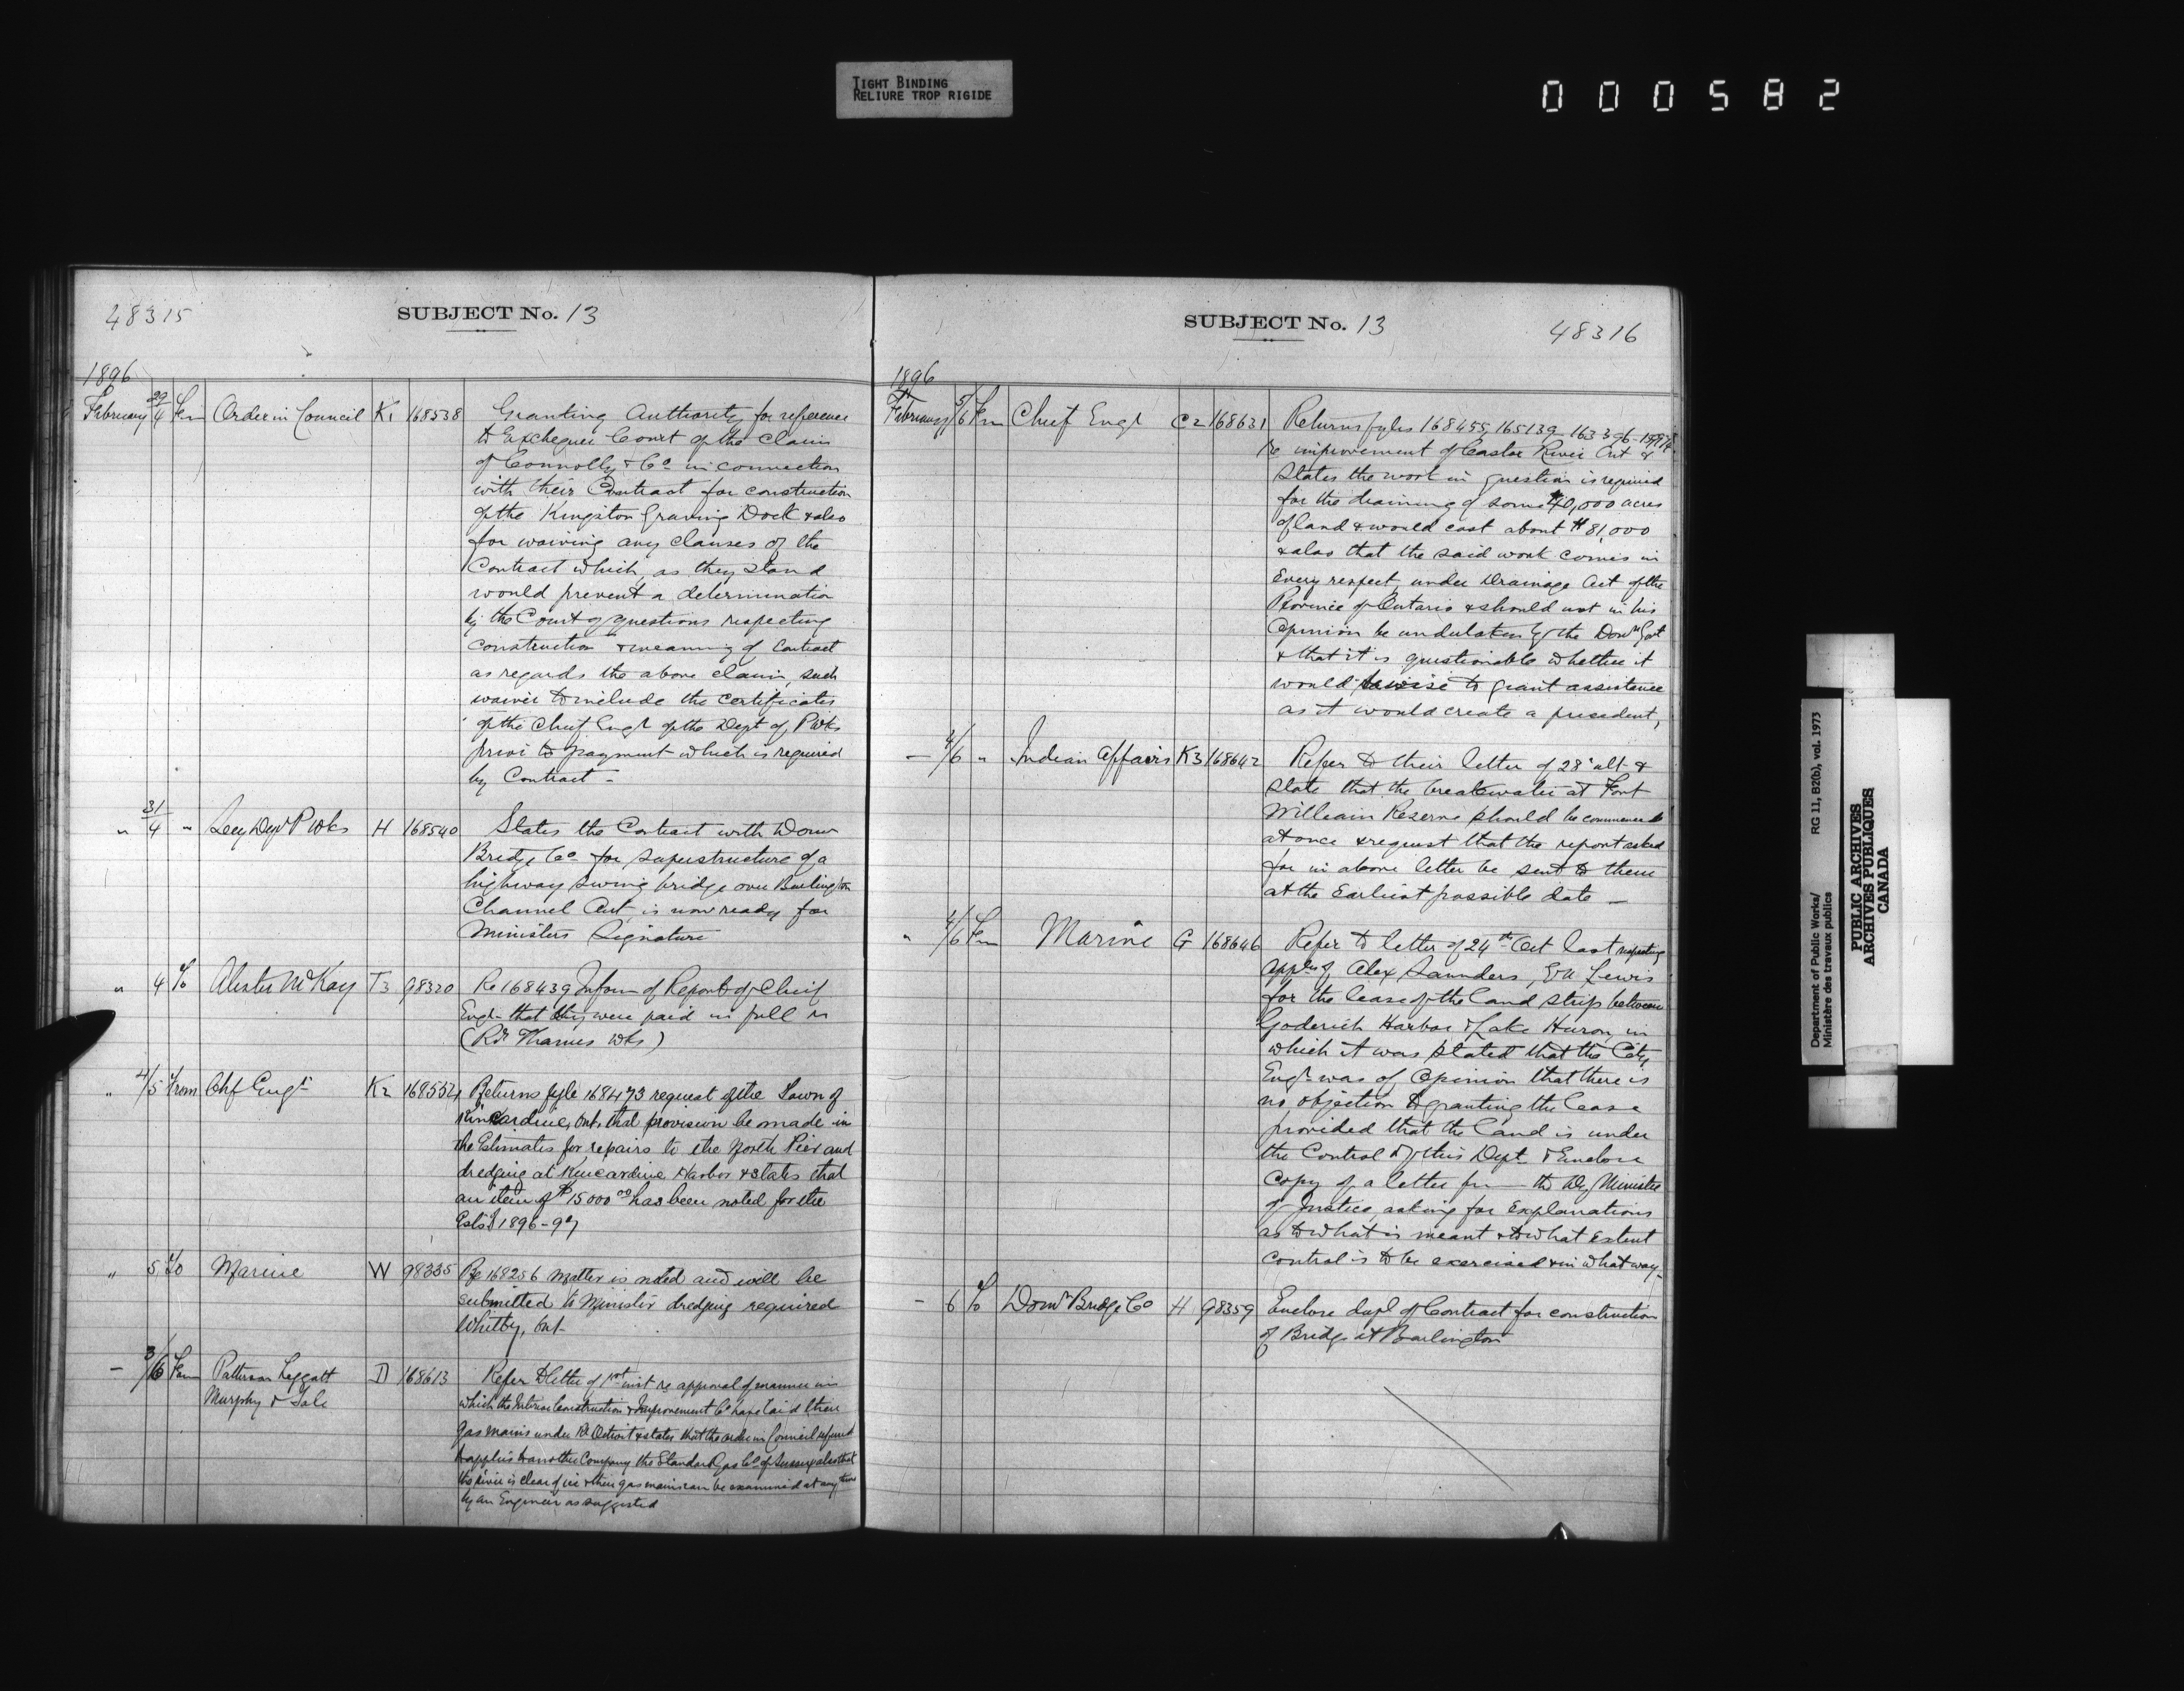 TIGHT BINDING
RELIURE TROP RIGIDE
000582
48315
SUBJECT No. 13
1896
February 29/4 Fm Order in Council K1 168538 Granting Authority for reference
to Exchequer Court of the claim
of Connolly & Co in connection
with their Contract for construction
of the Kingston Graving Dock & also
for waiving any clauses of the
Contract which, as they stand
would prevent a determination
by the Court of questions respecting
construction & meaning of Contract
as regards the above claim, such
waiver to include the certificates
of the Chief Engr of the Dept of P Wks
prior to payment which is required
by Contract -
" 31/4 " Secy Dept P Wks H 168540 States the Contract with Domn
Bridge Co for superstructure of a
highway swing bridge over Burlington
Channel Ont, is now ready for
Ministers Signature
" 4 To Alister McKay T3 98320 Re 168439 Inform of Report of Chief
Engr that they were paid in full
(Rr Thames Wks)
" 4/5 From Chf Engr K2 168554 Returns fyle 168473 request of the Town of
Kincardine, Ont. that provision be made in
the Estimates for repairs to the North Pier and
dredging at Kincardine Harbor & states that
an item of $15000.00 has been noted for the
Ests 1896-97
" 5 To Marine W 98335 Re 168256 Matter is noted and will be
submitted to Minister dredging required
Whitby, Ont-
- 3/6 Fm Patterson Leggatt D 168613 Refer to letter of 1st inst re approval of manner in
Murphy &
which the Interior Construction & Improvement Co have laid their
gas mains under Rr Detroit & states that the order in Council referred
to applies to another Company the Standard Gas Co of Sussex also that
the river is clear of ice & their gas mains can be examined at any time
by an Engineer as suggested
SUBJECT No. 13
48316
1896
February 5/6 Fm Chief Engr C2 168631 Returns fyles 168455, 165139, 163396
re improvement of Castor River Ont &
States the work in question is required
for the draining of some 40,000 acres
of land & would cost about $81,000
& also that the said work comes in
every respect, under Drainage Act of the
Province of Ontario & should not in his
Opinion be undertaken by the Domn Govt
& that it is questionable whether it
would be wise to grant assistance
as it would create a precedent,
- 4/6 " Indian Affairs K3 168642 Refer to their letter of 28 ult &
state that the breakwater at Fort
William Reserve should be commenced
at once & request that the report asked
for in above letter be sent to them
at the Earliest possible date -
" 4/6 Fm Marine G 168646 Refer to letter of 24th Oct last respecting
appln of Alex Saunders, Lewis
for the lease of the land strip between
Goderich Harbor & Lake Huron, in
which it was stated that the City
Engr was of Opinion that there is
no objection to granting the lease
provided that the land is under
the Control of this Dept & Enclose
Copy of a letter fm the Dy Minister
of Justice, asking for Explanations
as to what is meant & to what Extent
control is to be exercised & in what way-
- 6 To Domn Bridge Co H 98359 Enclose dupl of Contract for construction
of Bridge at Burlington
Department of Public Works/
Ministère des travaux publics
RG 11, B2(b), vol. 1973
PUBLIC ARCHIVES
ARCHIVES PUBLIQUES
CANADA